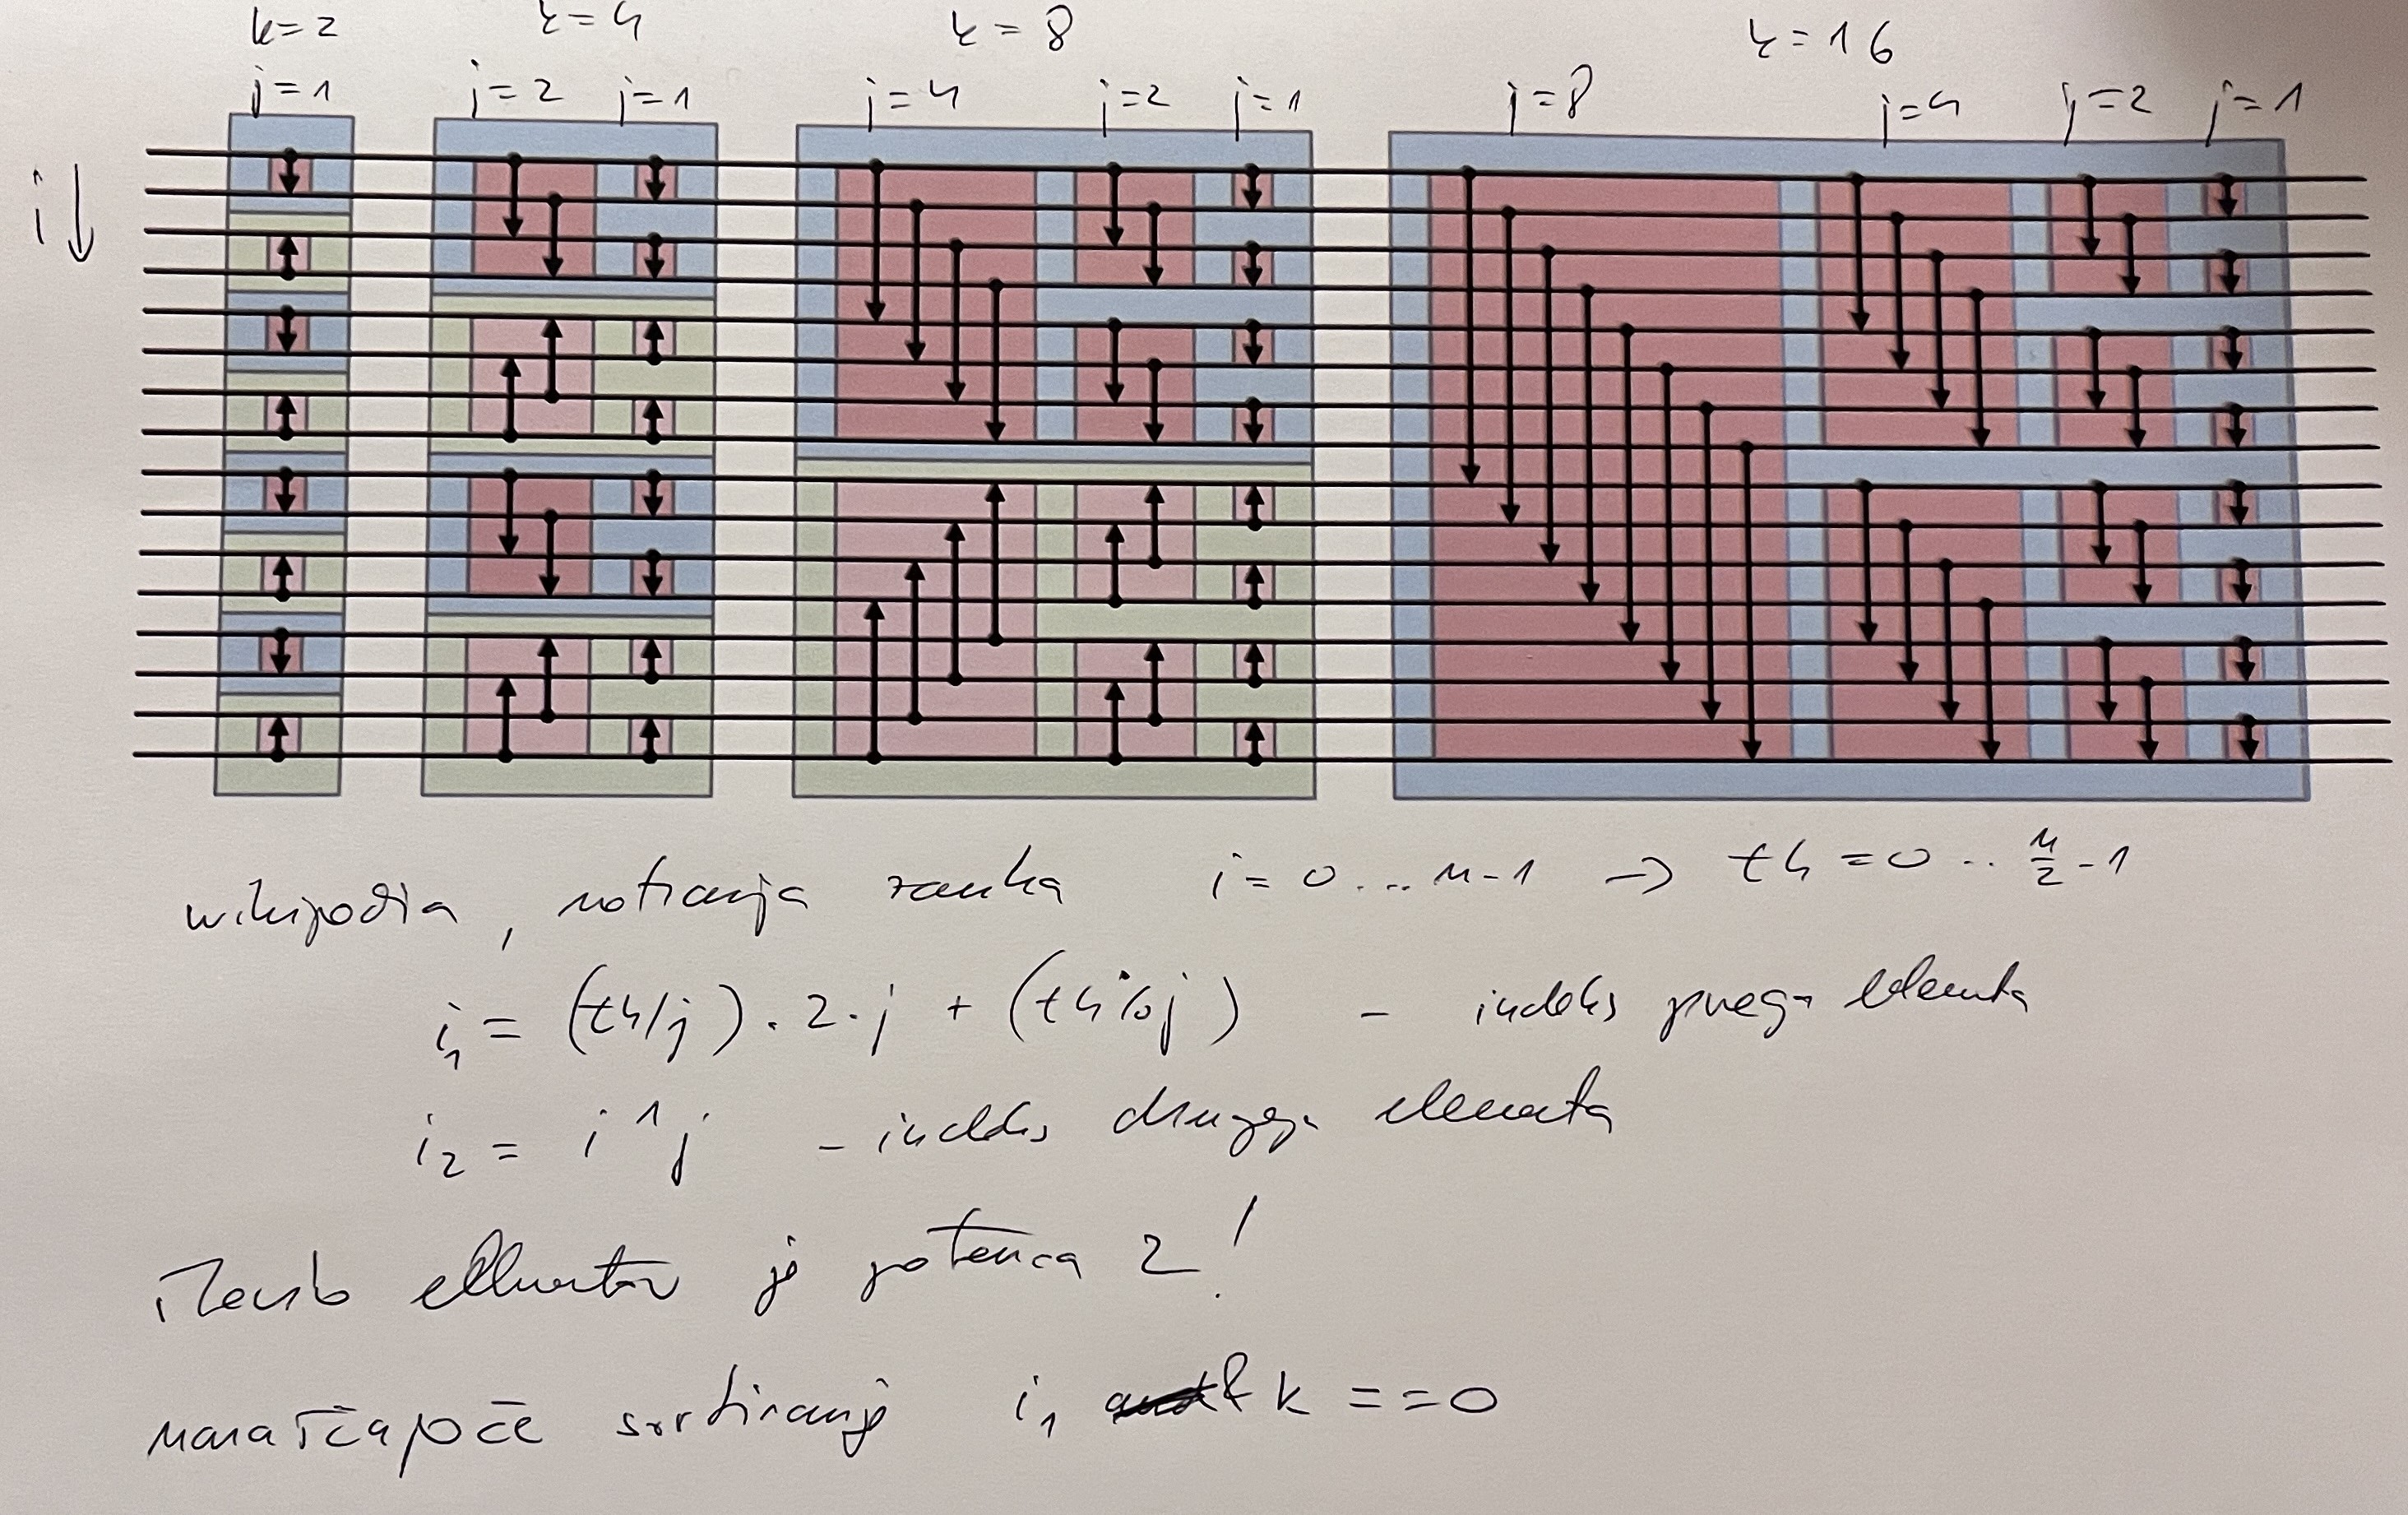 k=2 k=4 k=8 k=16
j=1 j=2 j=1 j=4 j=2 j=1 j=8 j=4 j=2 j=1
i ↓
wikipedia, notranja zanka i = 0 ... n-1 → th = 0 .. n/2 - 1
i₁ = (th/j) · 2 · j + (th%j) - indeks prvega elementa
i₂ = i ^ j - indeks drugega elementa
število elementov je potenca 2!
naraščajoče sortiranje i₁ & k == 0